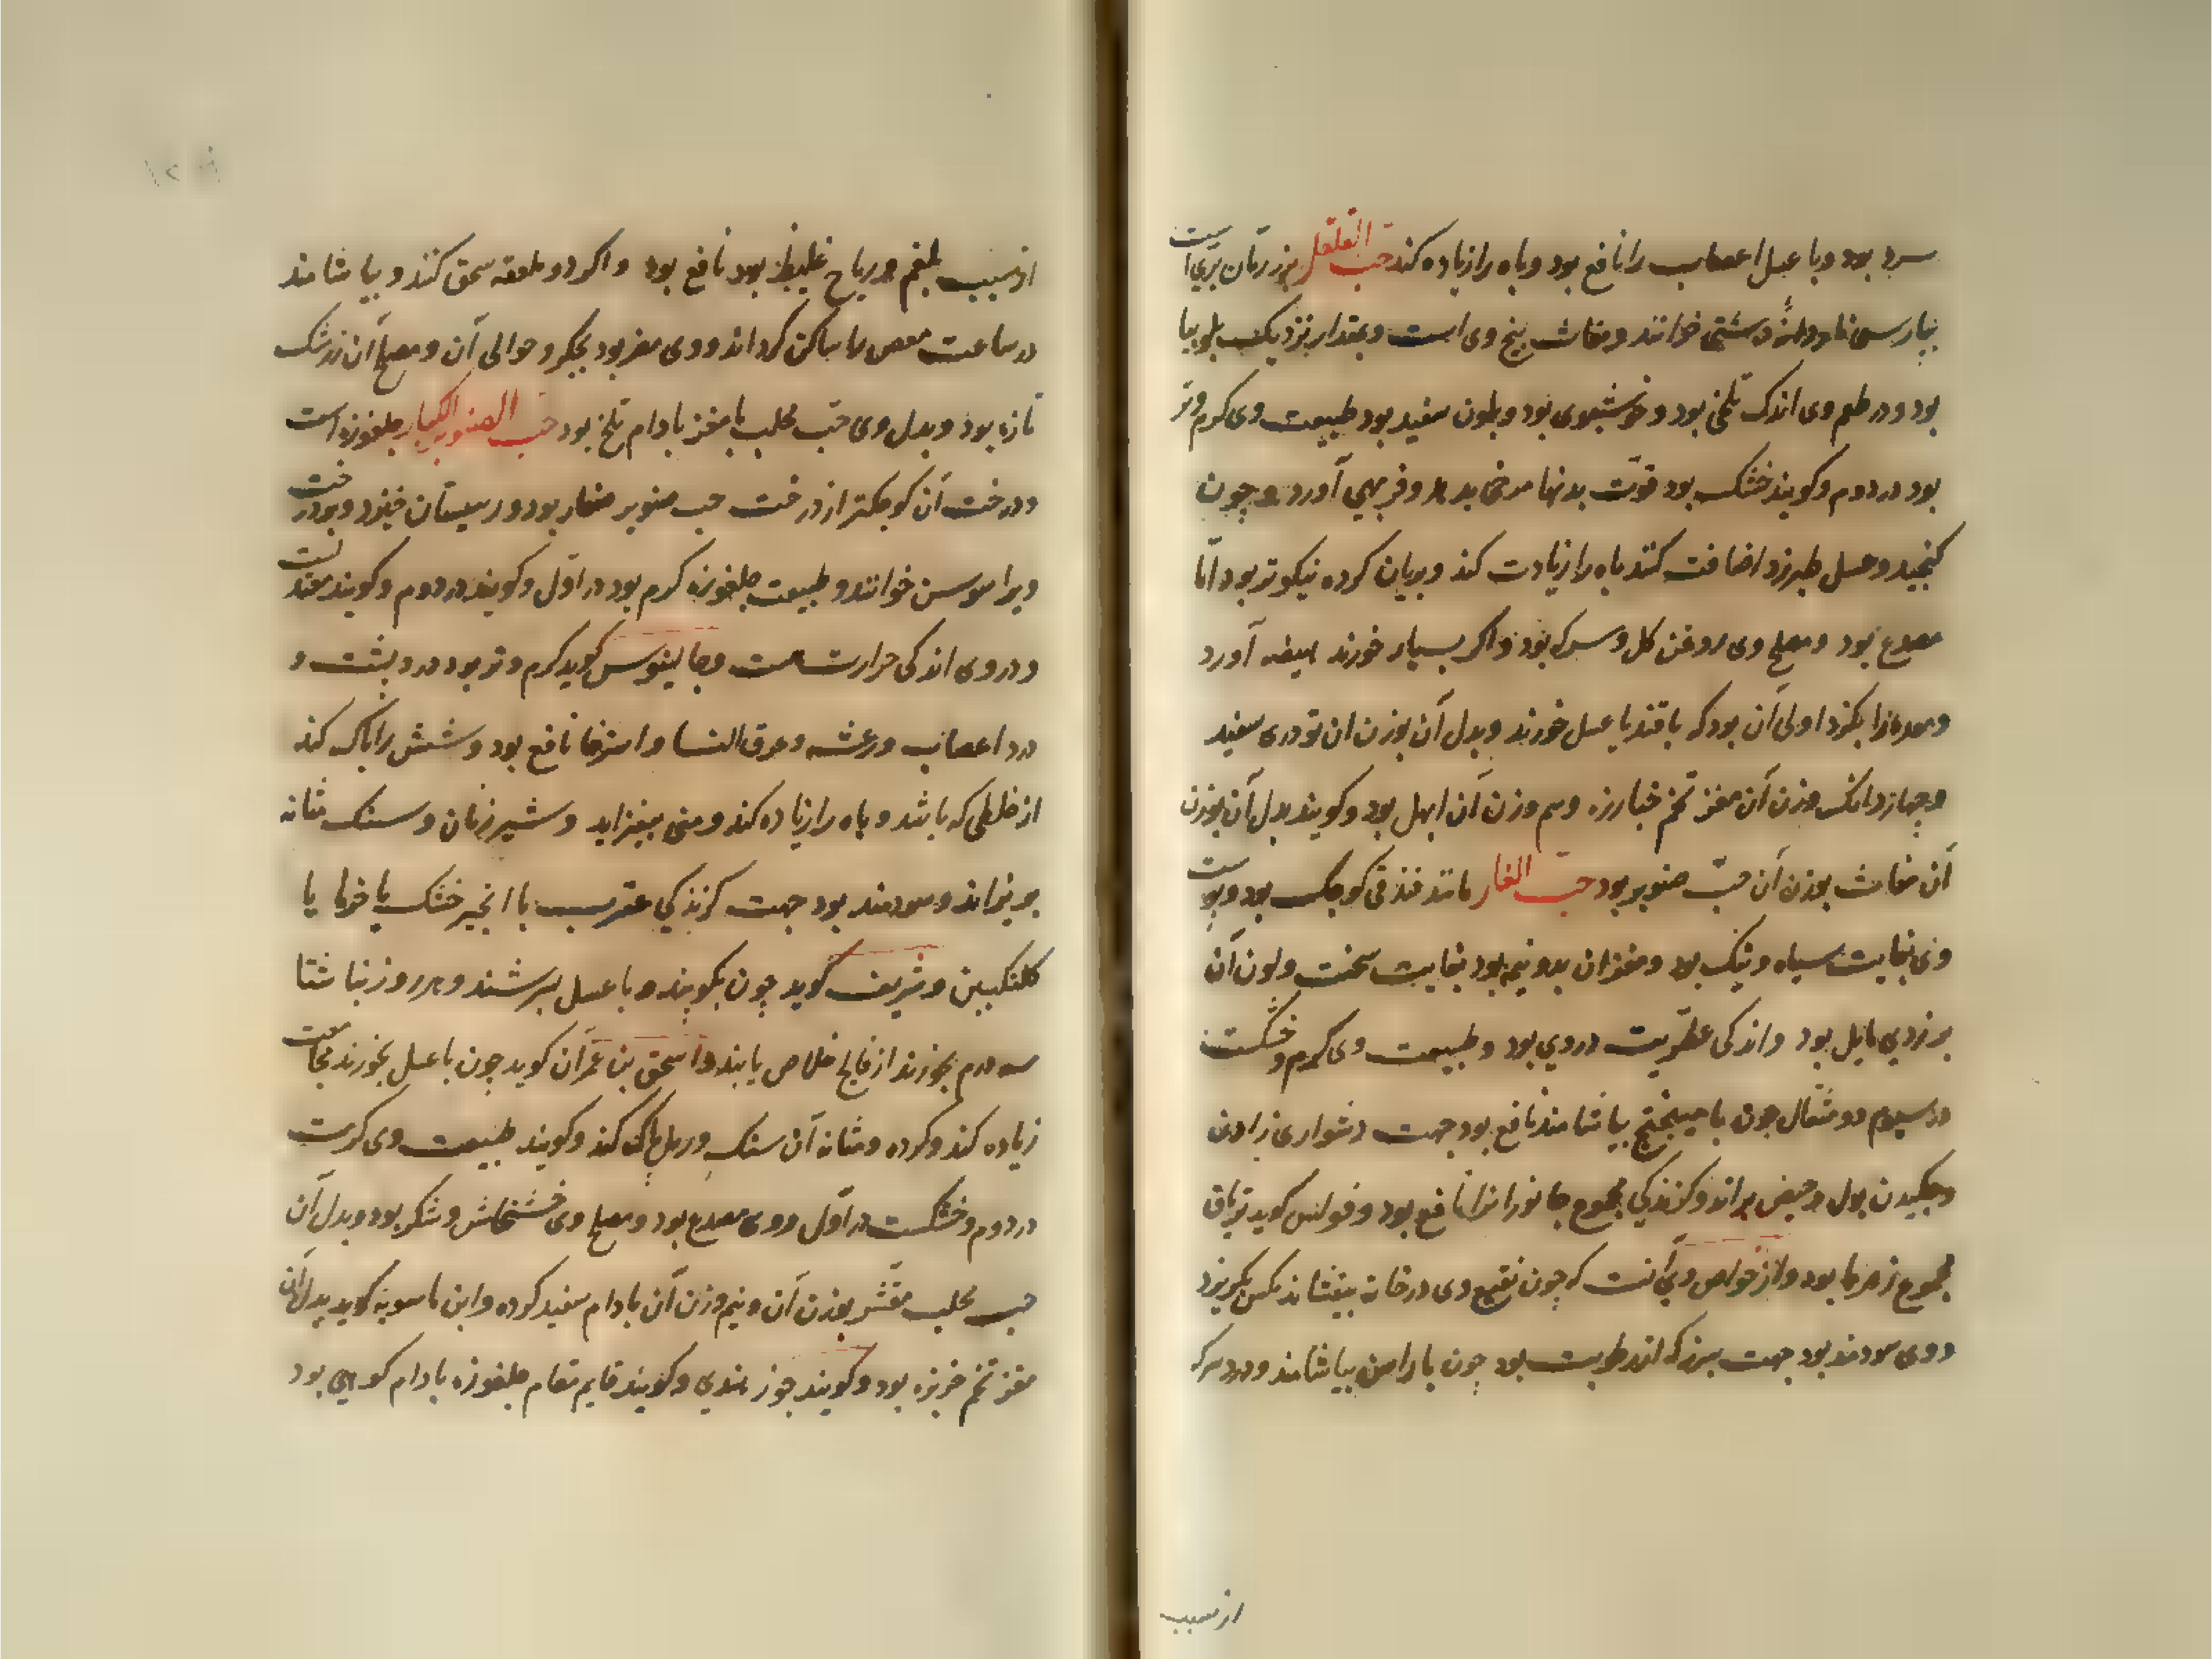 سرد بود و با عسل اعصاب را نافع بود و باه را زیاده کند حب القلقل بزر رمان بری است
بپارسی ناردانهٔ دشتی خوانند و مغاث بیخ وی است و بمقدار نزدیک بلوبیا
بود و در طعم وی اندک تلخی بود و خوشبوی بود و بلون سفید بود طبیعت وی کرم و تر
بود در دوم و کویند خشک بود قوت بدنها مرخی بدهد و فربهی آورد و چون
کنجید و عسل طبرزد اضافت کنند باه را زیادت کند و بریان کرده نیکوتر بود اما
مصدع بود و مصلح وی روغن کل و سرکه بود و اکر بسیار خورند هیضه آورد
و معده را بکزد اولی آن بود که با قند یا عسل خورند و بدل آن بوزن ان تودری سفید
و چهار دانک وزن آن مغز تخم خیارزه وسم وزن آن ابهل بود و کویند بدل آن بوزن
آن مغاث بوزن آن حب صنوبر بود حب الغار مانند فندقی کوچک بود و پوست
وی بغایت سیاه و تنک بود و مغزان بدو نیم بود بغایت سخت و لون آن
بزردی مایل بود و اندکی عطریت در وی بود و طبیعت وی کرم و خشکست
در سیوم دو مثقال چون با میبختج بیاشامند نافع بود جهت دشواری زادن
و چکیدن بول و حیض براند و کزندکی مجموع جانورانرا نافع بود و فولس کوید تریاق
مجموع زهرها بود و از خواص وی آنست که چون نقیع وی در خانه بیفشانند مکس بکریزد
و وی سودمند بود جهت سپرز که از رطوبت بود چون با راسن بیاشامند و درد سر که
از سبب
از سبب بلغم و ریاح غلیظ بود نافع بود و اکر دو ملعقه سحق کنند و بیاشامند
در ساعت مغص را ساکن کرداند و وی مضر بود بجکر و حوالی آن و مصلح آن زرشک
تازه بود و بدل وی حب محلب یا مغز بادام تلخ بود حب الصنوبر الکبار چلغوزه است
و درخت آن کوچکتر از درخت حب صنوبر صغار بود و در سیستان خیزد و بدرخت
ویرا سوسن خوانند و طبیعت چلغوزه کرم بود در اول و کویند در دوم و کویند معتدلست
و در وی اندکی حرارت هست و جالینوس کوید کرم و تر بود درد پشت و
درد اعصاب و رعشه و عرق النسا و استرخا نافع بود و شش را پاک کند
از خلطی که باشد و باه را زیاده کند و منی بیفزاید و شیر زنان و سنک مثانه
بریزاند و سودمند بود جهت کزندکی عقرب با انجیر خشک یا خرما یا
کلنکبین و شریف کوید چون بکوبند و با عسل بسرشند و هر روز بناشتا
سه درم بخورند از فالج خلاص یابند و اسحق بن عمران کوید چون با عسل بخورند مجامعت
زیاده کند و کرده و مثانه آن سنک و رمل پاک کند و کویند طبیعت وی کرمست
در دوم و خشکست در اول و وی مصدع بود و مصلح وی خشخاش و شکر بود و بدل آن
حب محلب مقشر بوزن آن و نیم وزن آن بادام سفید کرده و ابن ماسویه کوید بدل آن
مغز تخم خربزه بود و کویند جوز هندی و کویند قایم مقام چلغوزه بادام کوهی بود